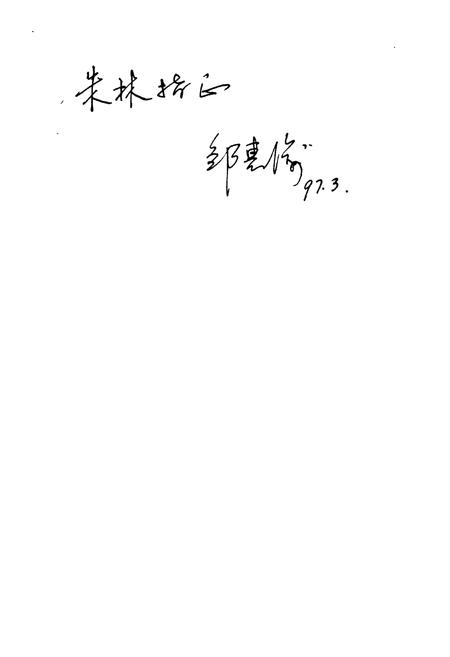 朱林指正
邹惠愉
97.3.